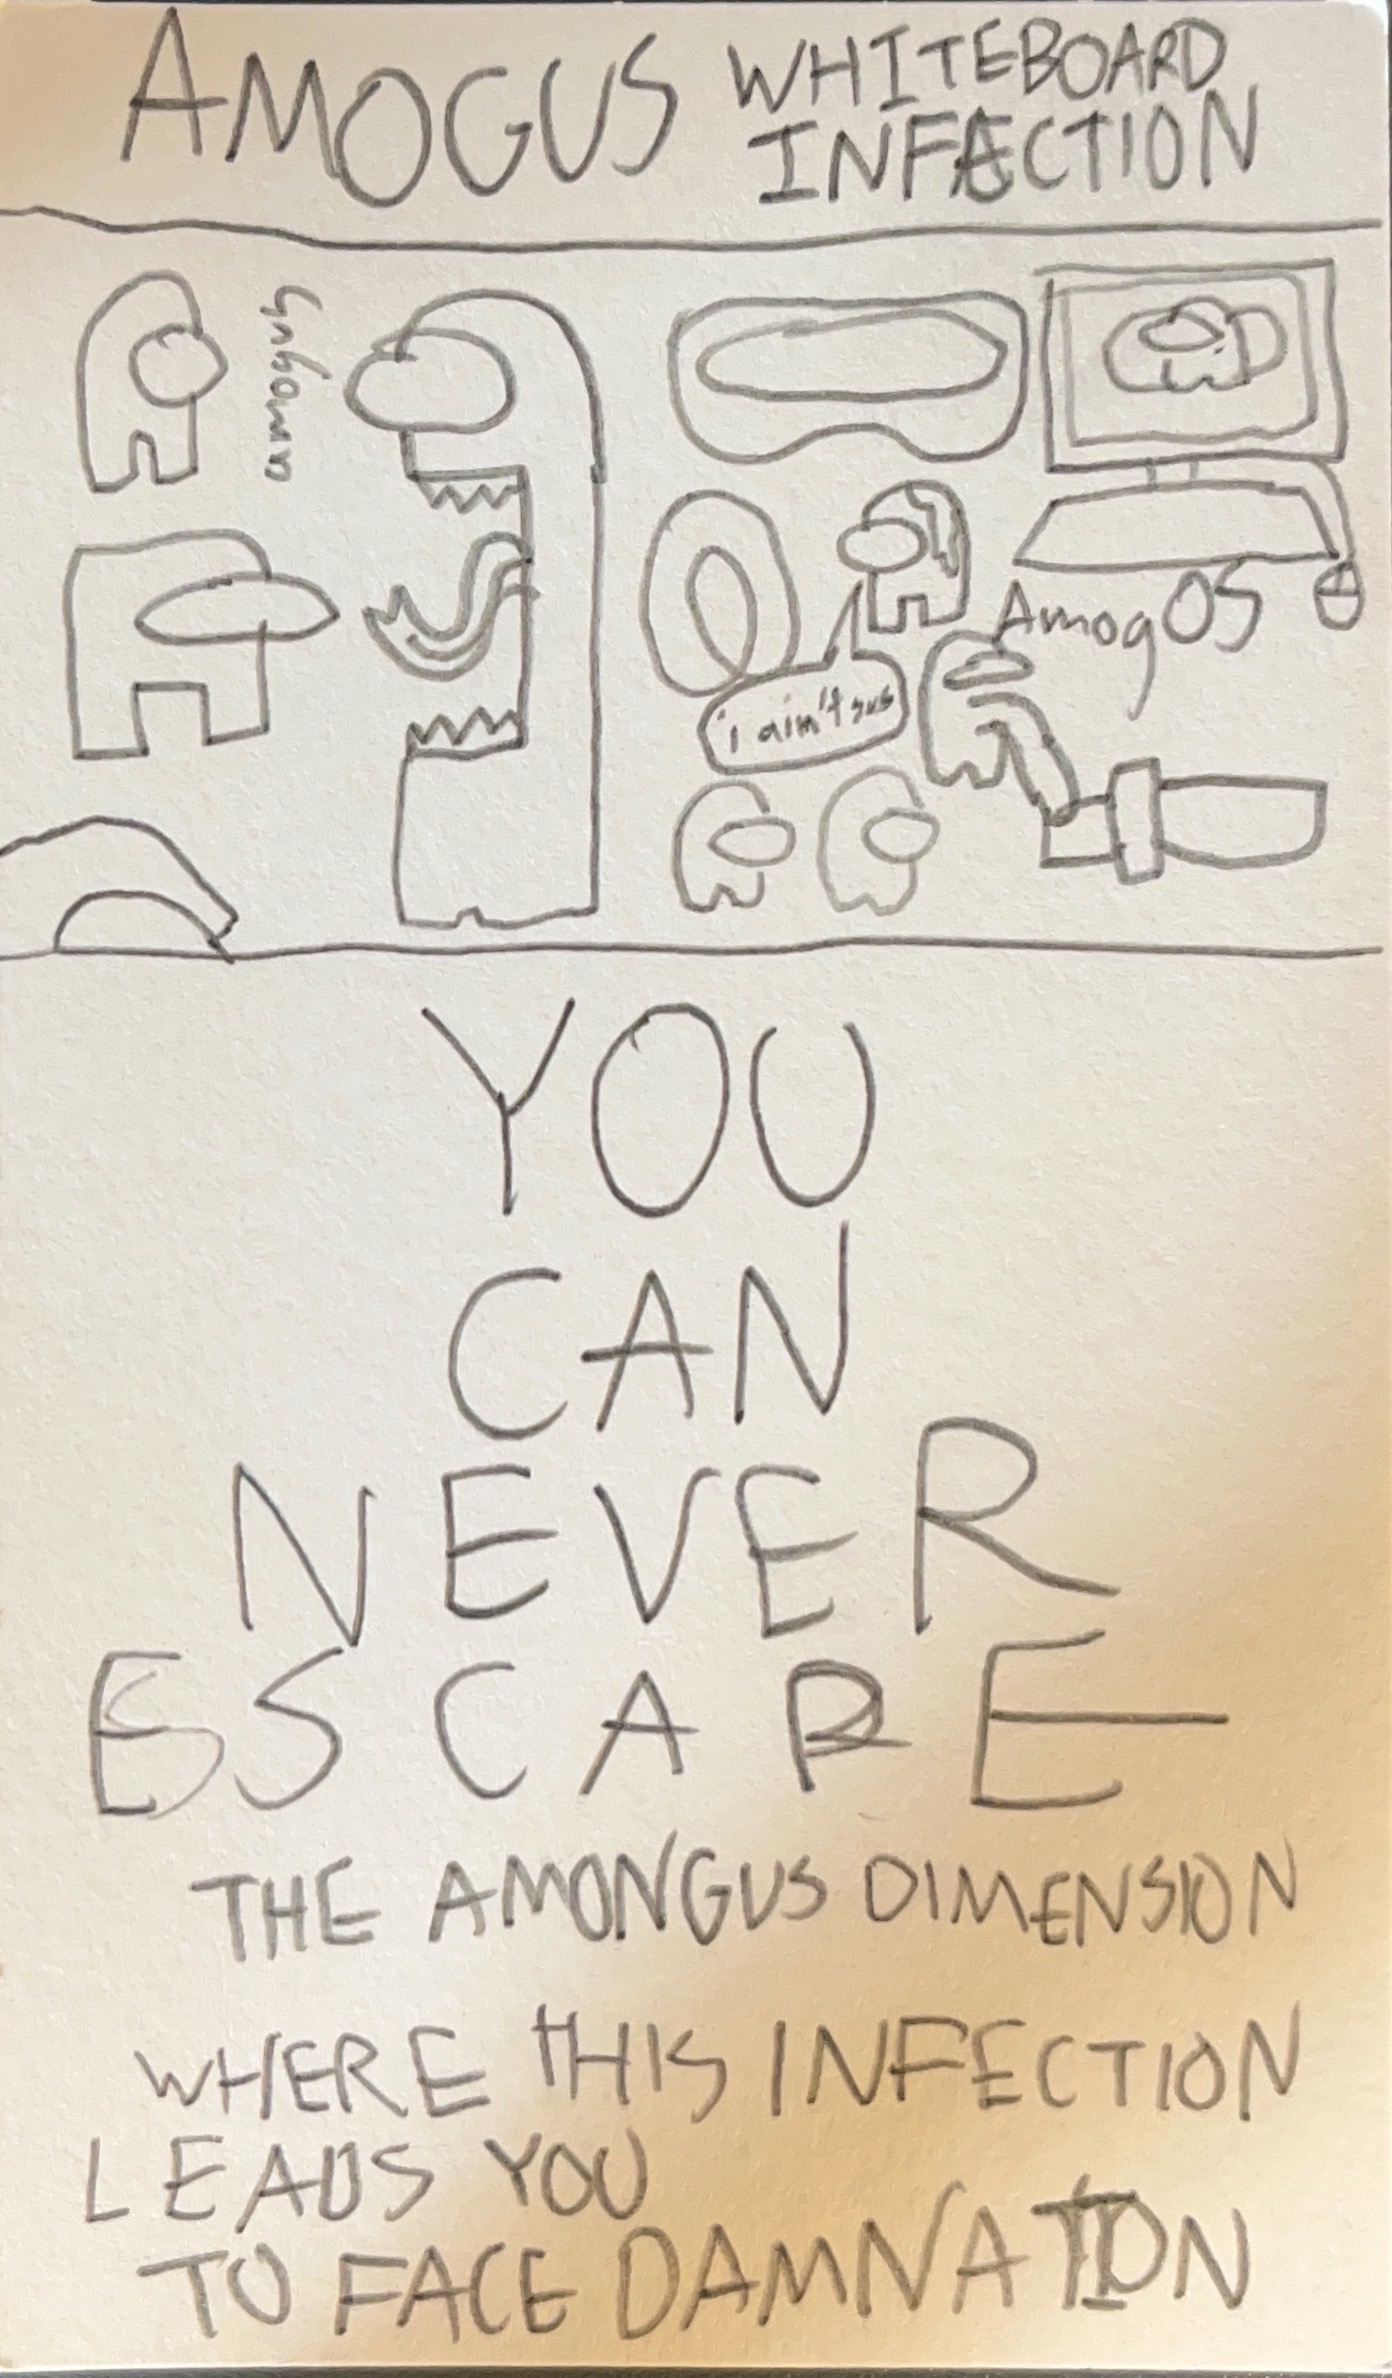 AMOGUS WHITEBOARD
INFECTION
amogus
AmogOS
i ain't sus
YOU
CAN
NEVER
ESCAPE
THE AMONGUS DIMENSION
WHERE THIS INFECTION
LEADS YOU
TO FACE DAMNATION